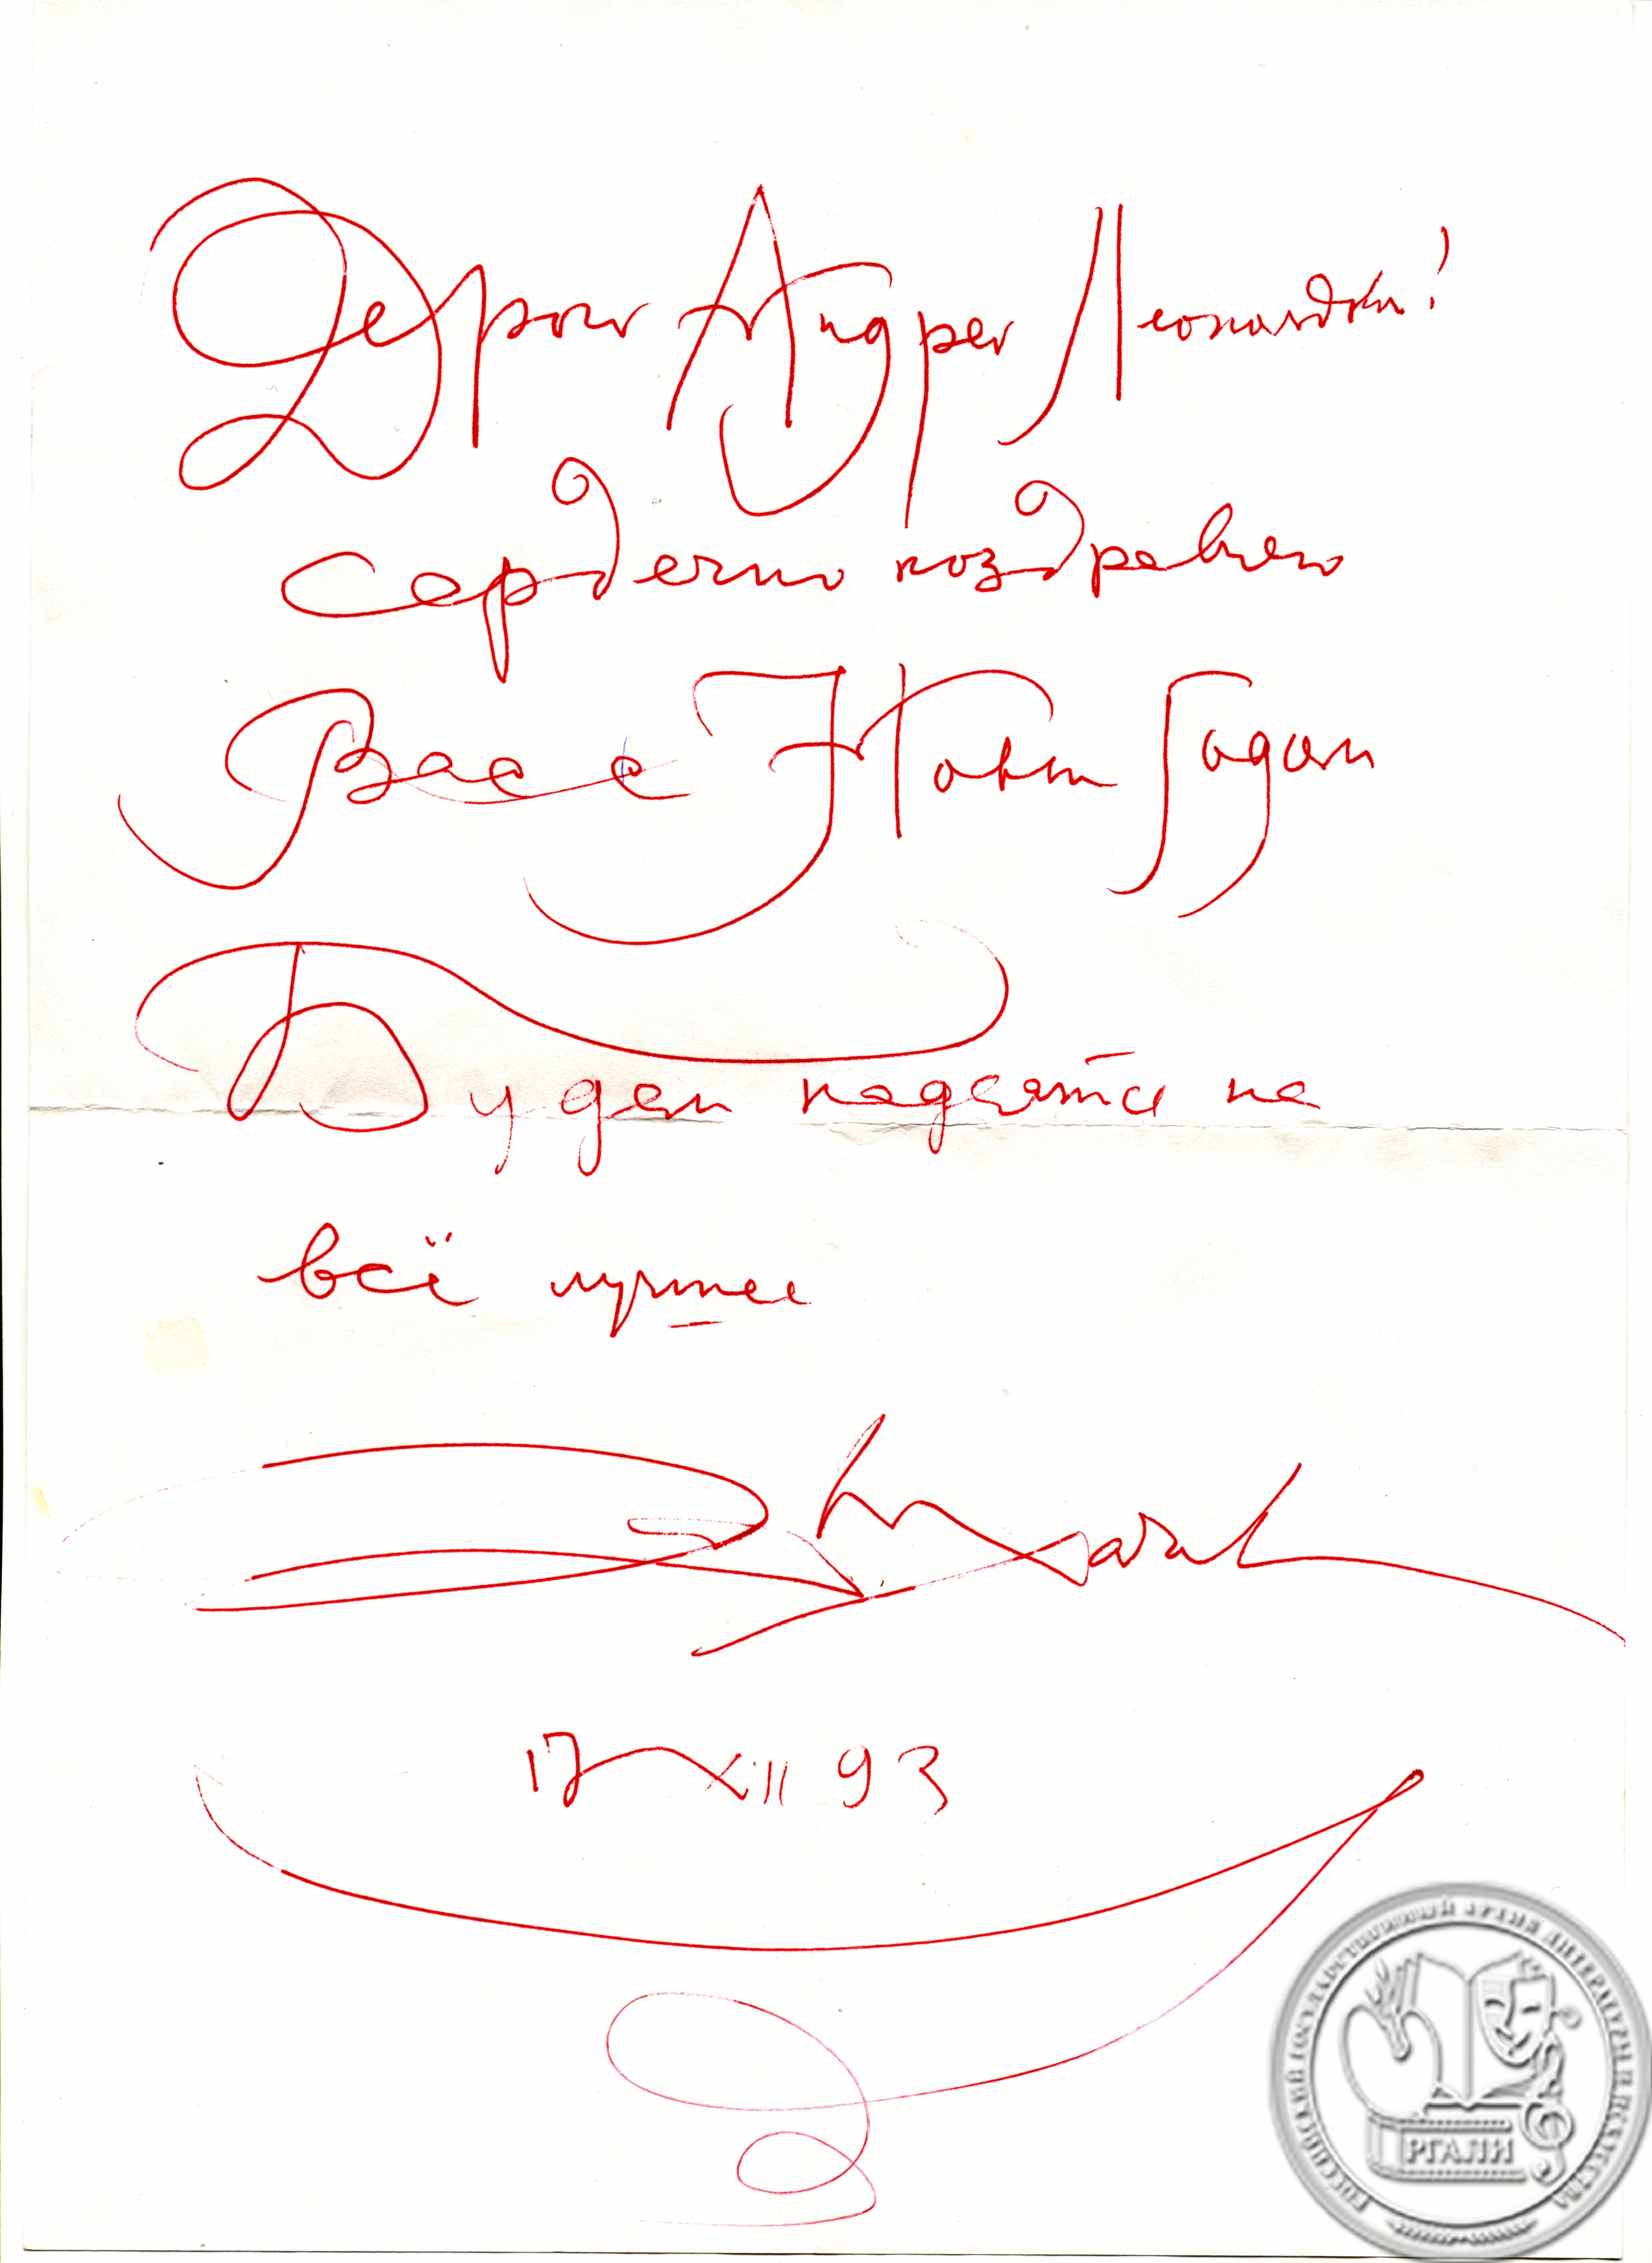 Дорогой Андрей Леонидович!
сердечно поздравляю
Вас с Новым Годом
Будем надеяться на
всё лучшее
17 XII 93
РОССИЙСКИЙ ГОСУДАРСТВЕННЫЙ АРХИВ ЛИТЕРАТУРЫ И ИСКУССТВА
РГАЛИ